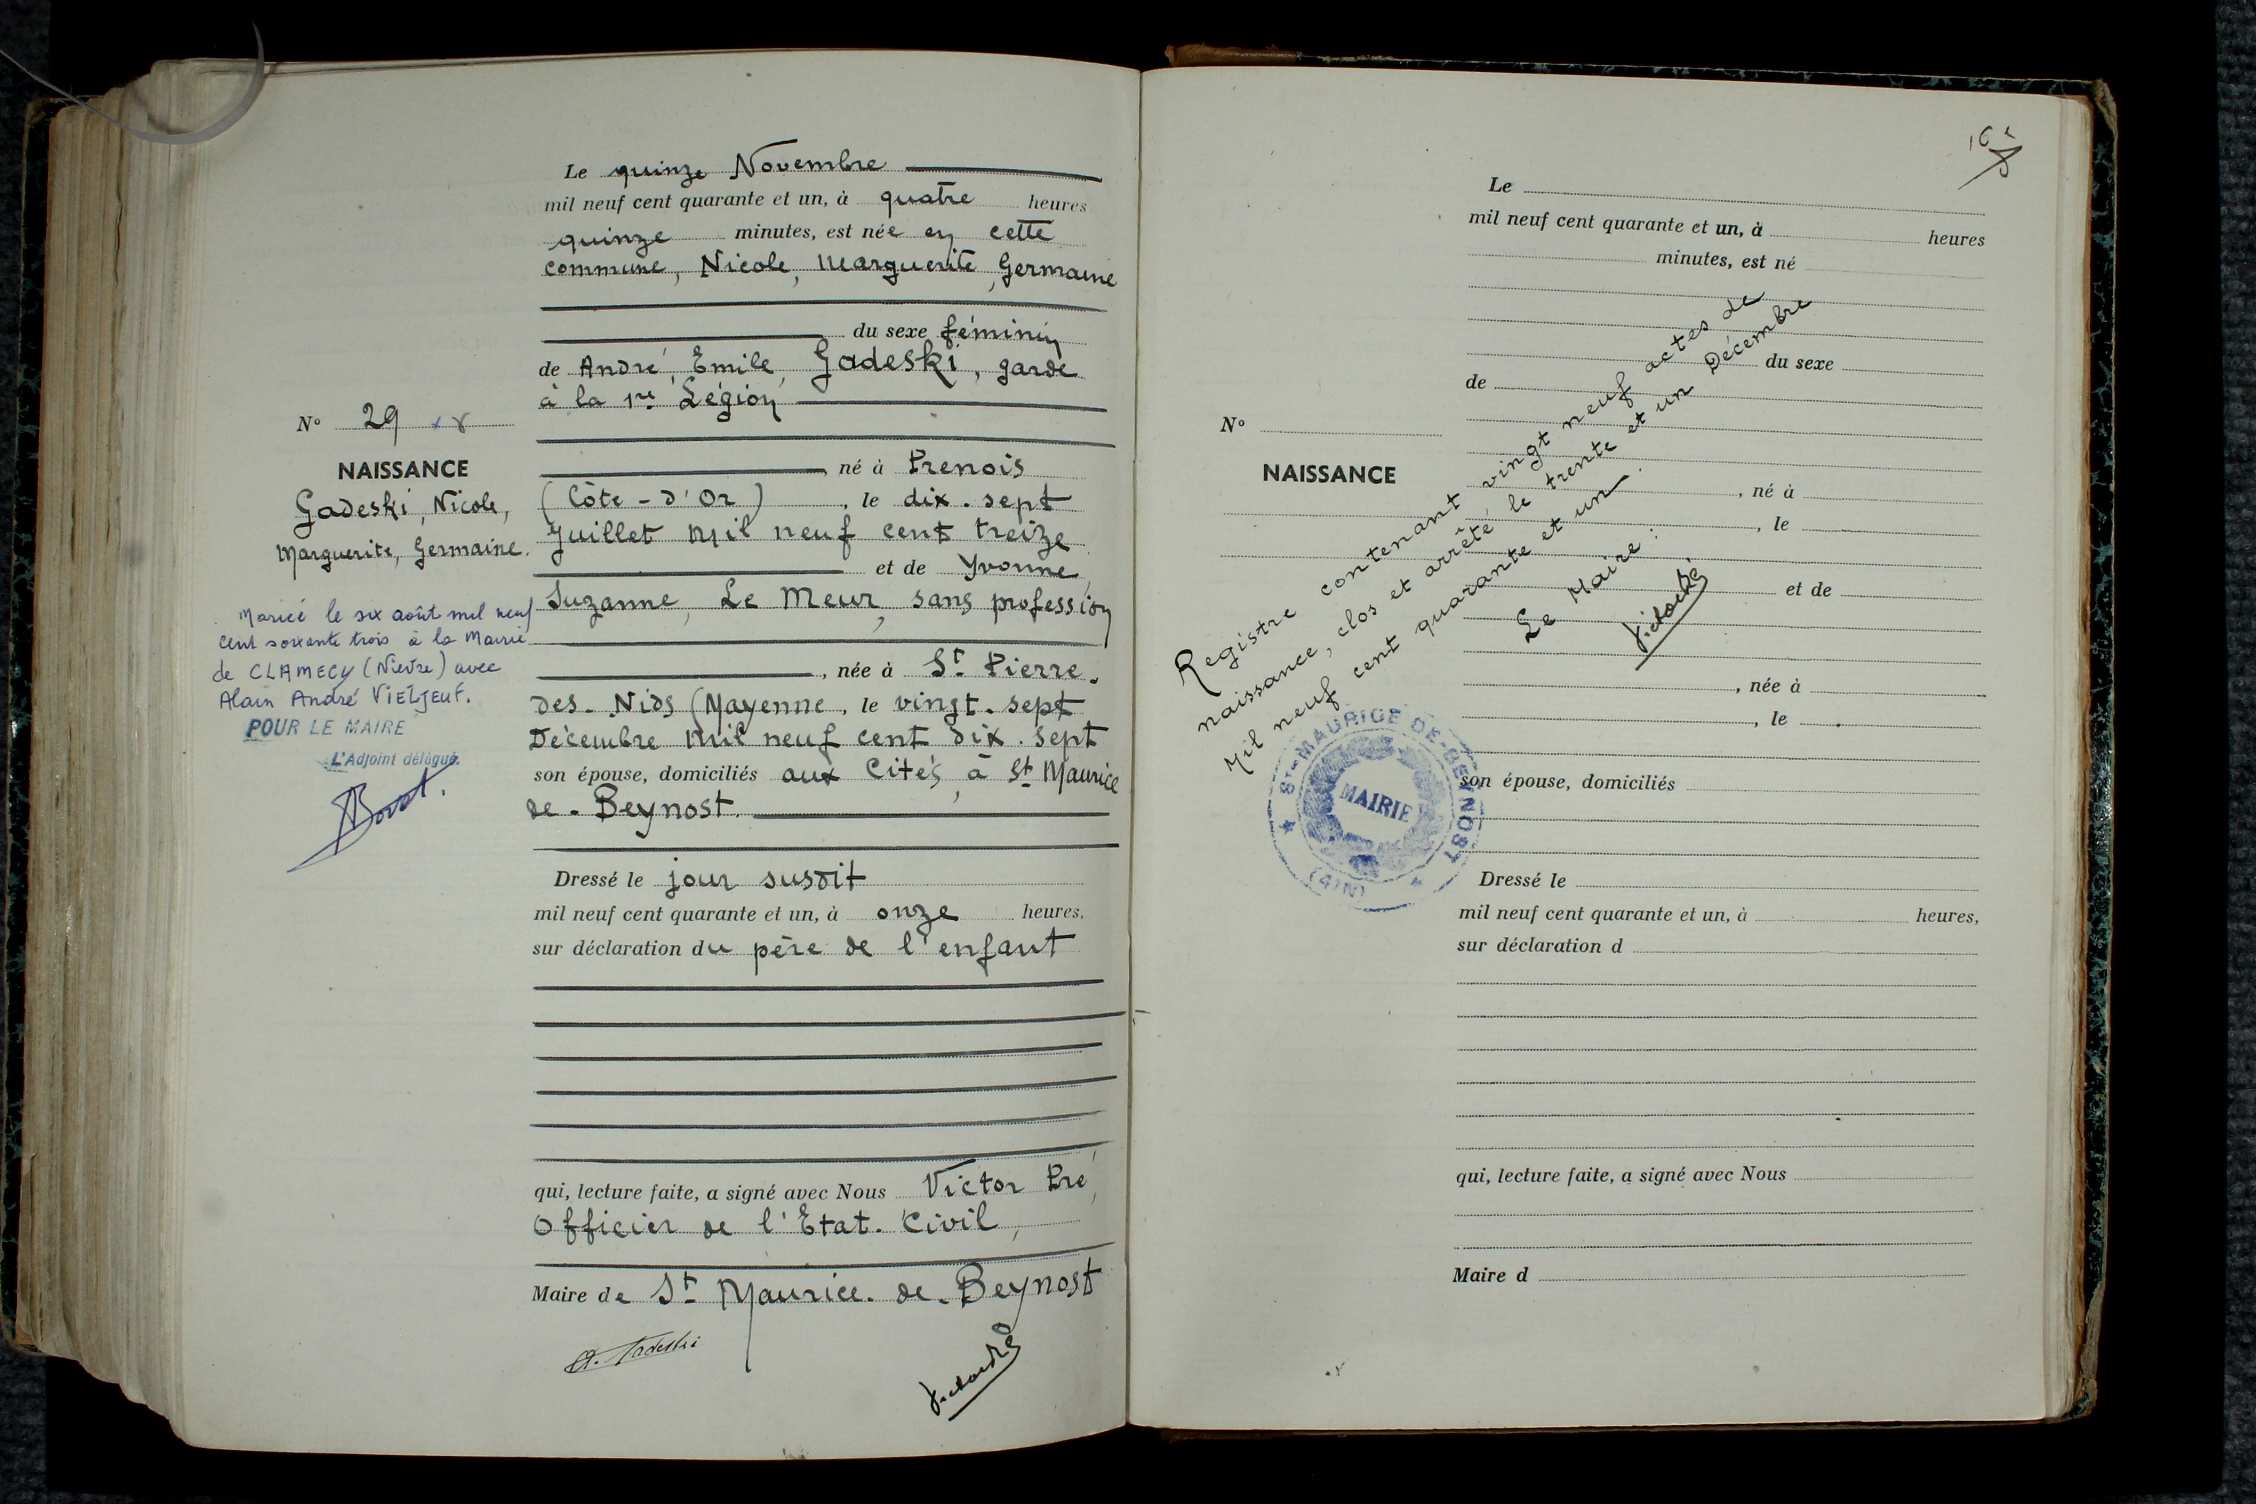 Le quinze Novembre
mil neuf cent quarante et un, à quatre heures
quinze minutes, est née en cette
commune, Nicole, Marguerite, Germaine
du sexe féminin
de André, Emile, Gadeski, garde
à la 1re Légion
né à Prenois
(Côte-d'Or), le dix-sept
Juillet mil neuf cent treize
et de Yvonne,
Suzanne, Le Meur, sans profession
, née à St Pierre-
des-Nids (Mayenne, le vingt-sept
Décembre mil neuf cent dix-sept
son épouse, domiciliés aux Cités, à St Maurice
de-Beynost.
Dressé le jour susdit
mil neuf cent quarante et un, à onze heures,
sur déclaration du père de l'enfant
qui, lecture faite, a signé avec Nous Victor Pré,
Officier de l'Etat-Civil,
Maire de St Maurice-de-Beynost
A. Gadeski
No 29
NAISSANCE
Gadeski, Nicole,
Marguerite, Germaine.
Mariée le six août mil neuf
cent soixante trois à la Mairie
de CLAMECY (Nièvre) avec
Alain André VIELJEUF.
POUR LE MAIRE
L'Adjoint délégué.
Le
mil neuf cent quarante et un, à heures
minutes, est né
du sexe
de
No
NAISSANCE
, né à
, le
et de
, née à
, le
son épouse, domiciliés
Dressé le
mil neuf cent quarante et un, à heures,
sur déclaration d
qui, lecture faite, a signé avec Nous
Maire d
Registre contenant vingt neuf actes de
naissance, clos et arrêté le trente et un Décembre
Mil neuf cent quarante et un.
Le Maire :
St-MAURICE-DE-BEYNOST
MAIRIE
(AIN)